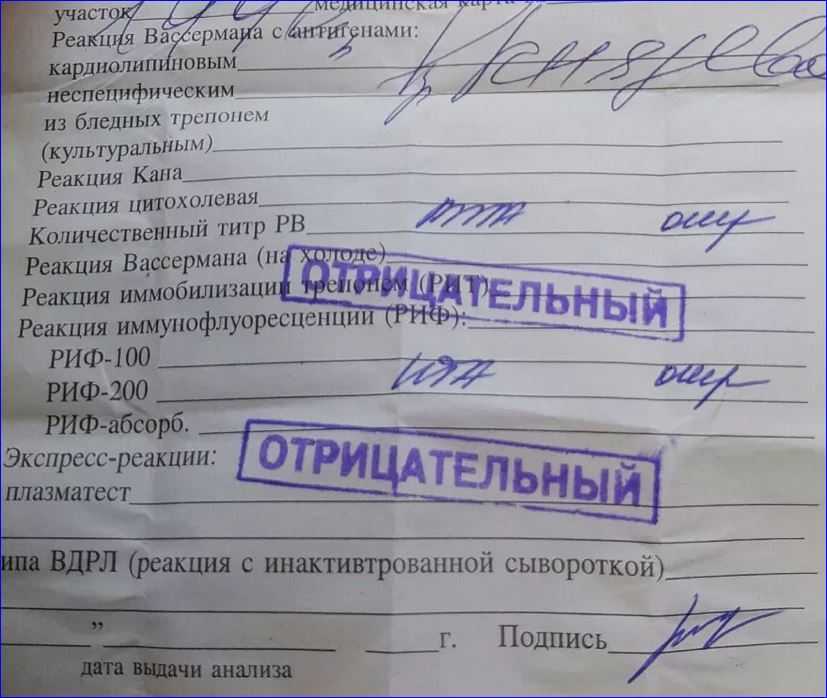 участок медицинская карта
Реакция Вассермана с антигенами:
кардиолипиновым
неспецифическим
из бледных трепонем
(культуральным)
Реакция Кана
Реакция цитохолевая
Количественный титр РВ отр
Реакция Вассермана (на холоде)
ОТРИЦАТЕЛЬНЫЙ
Реакция иммобилизации трепонем (РИТ)
Реакция иммунофлуоресценции (РИФ):
РИФ-100
РИФ-200 отр
РИФ-абсорб.
ОТРИЦАТЕЛЬНЫЙ
Экспресс-реакции:
плазматест
ипа ВДРЛ (реакция с инактивтрованной сывороткой)
” г. Подпись
дата выдачи анализа